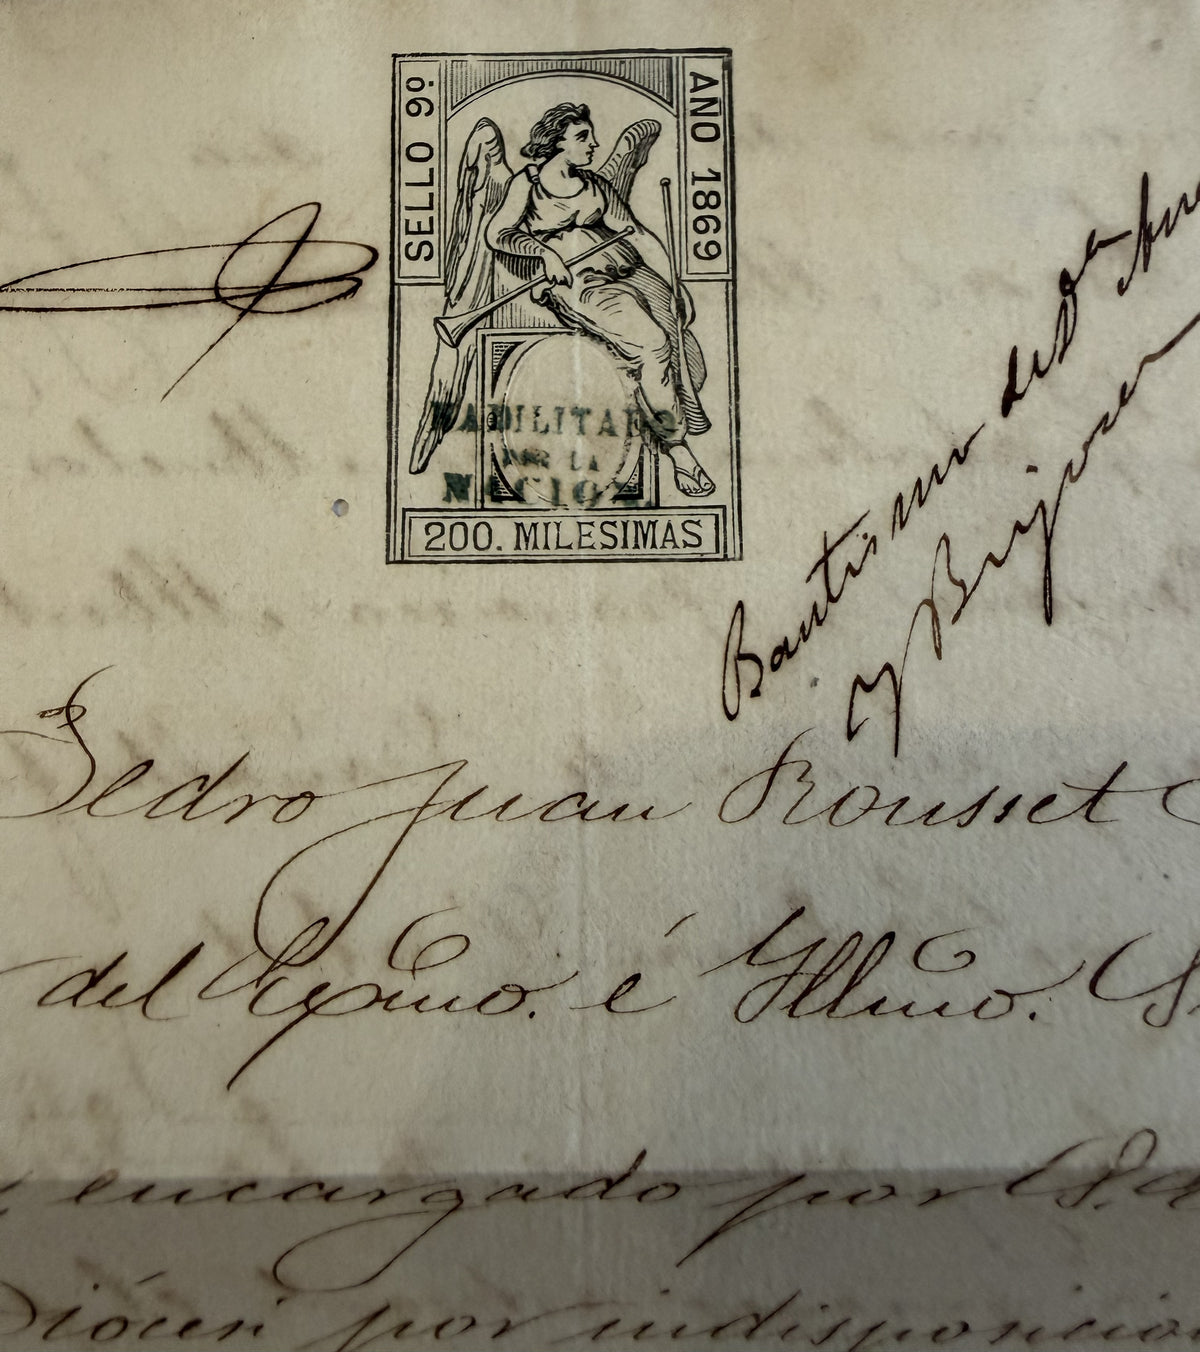 SELLO 9º
AÑO 1869
HABILITADO
POR LA
NACION.
200. MILESIMAS
Bautismo de Da
y
Pedro Juan Rousset
del Exmo. é Yllmo. S.
encargado por S.
Diócesi por indisposicion